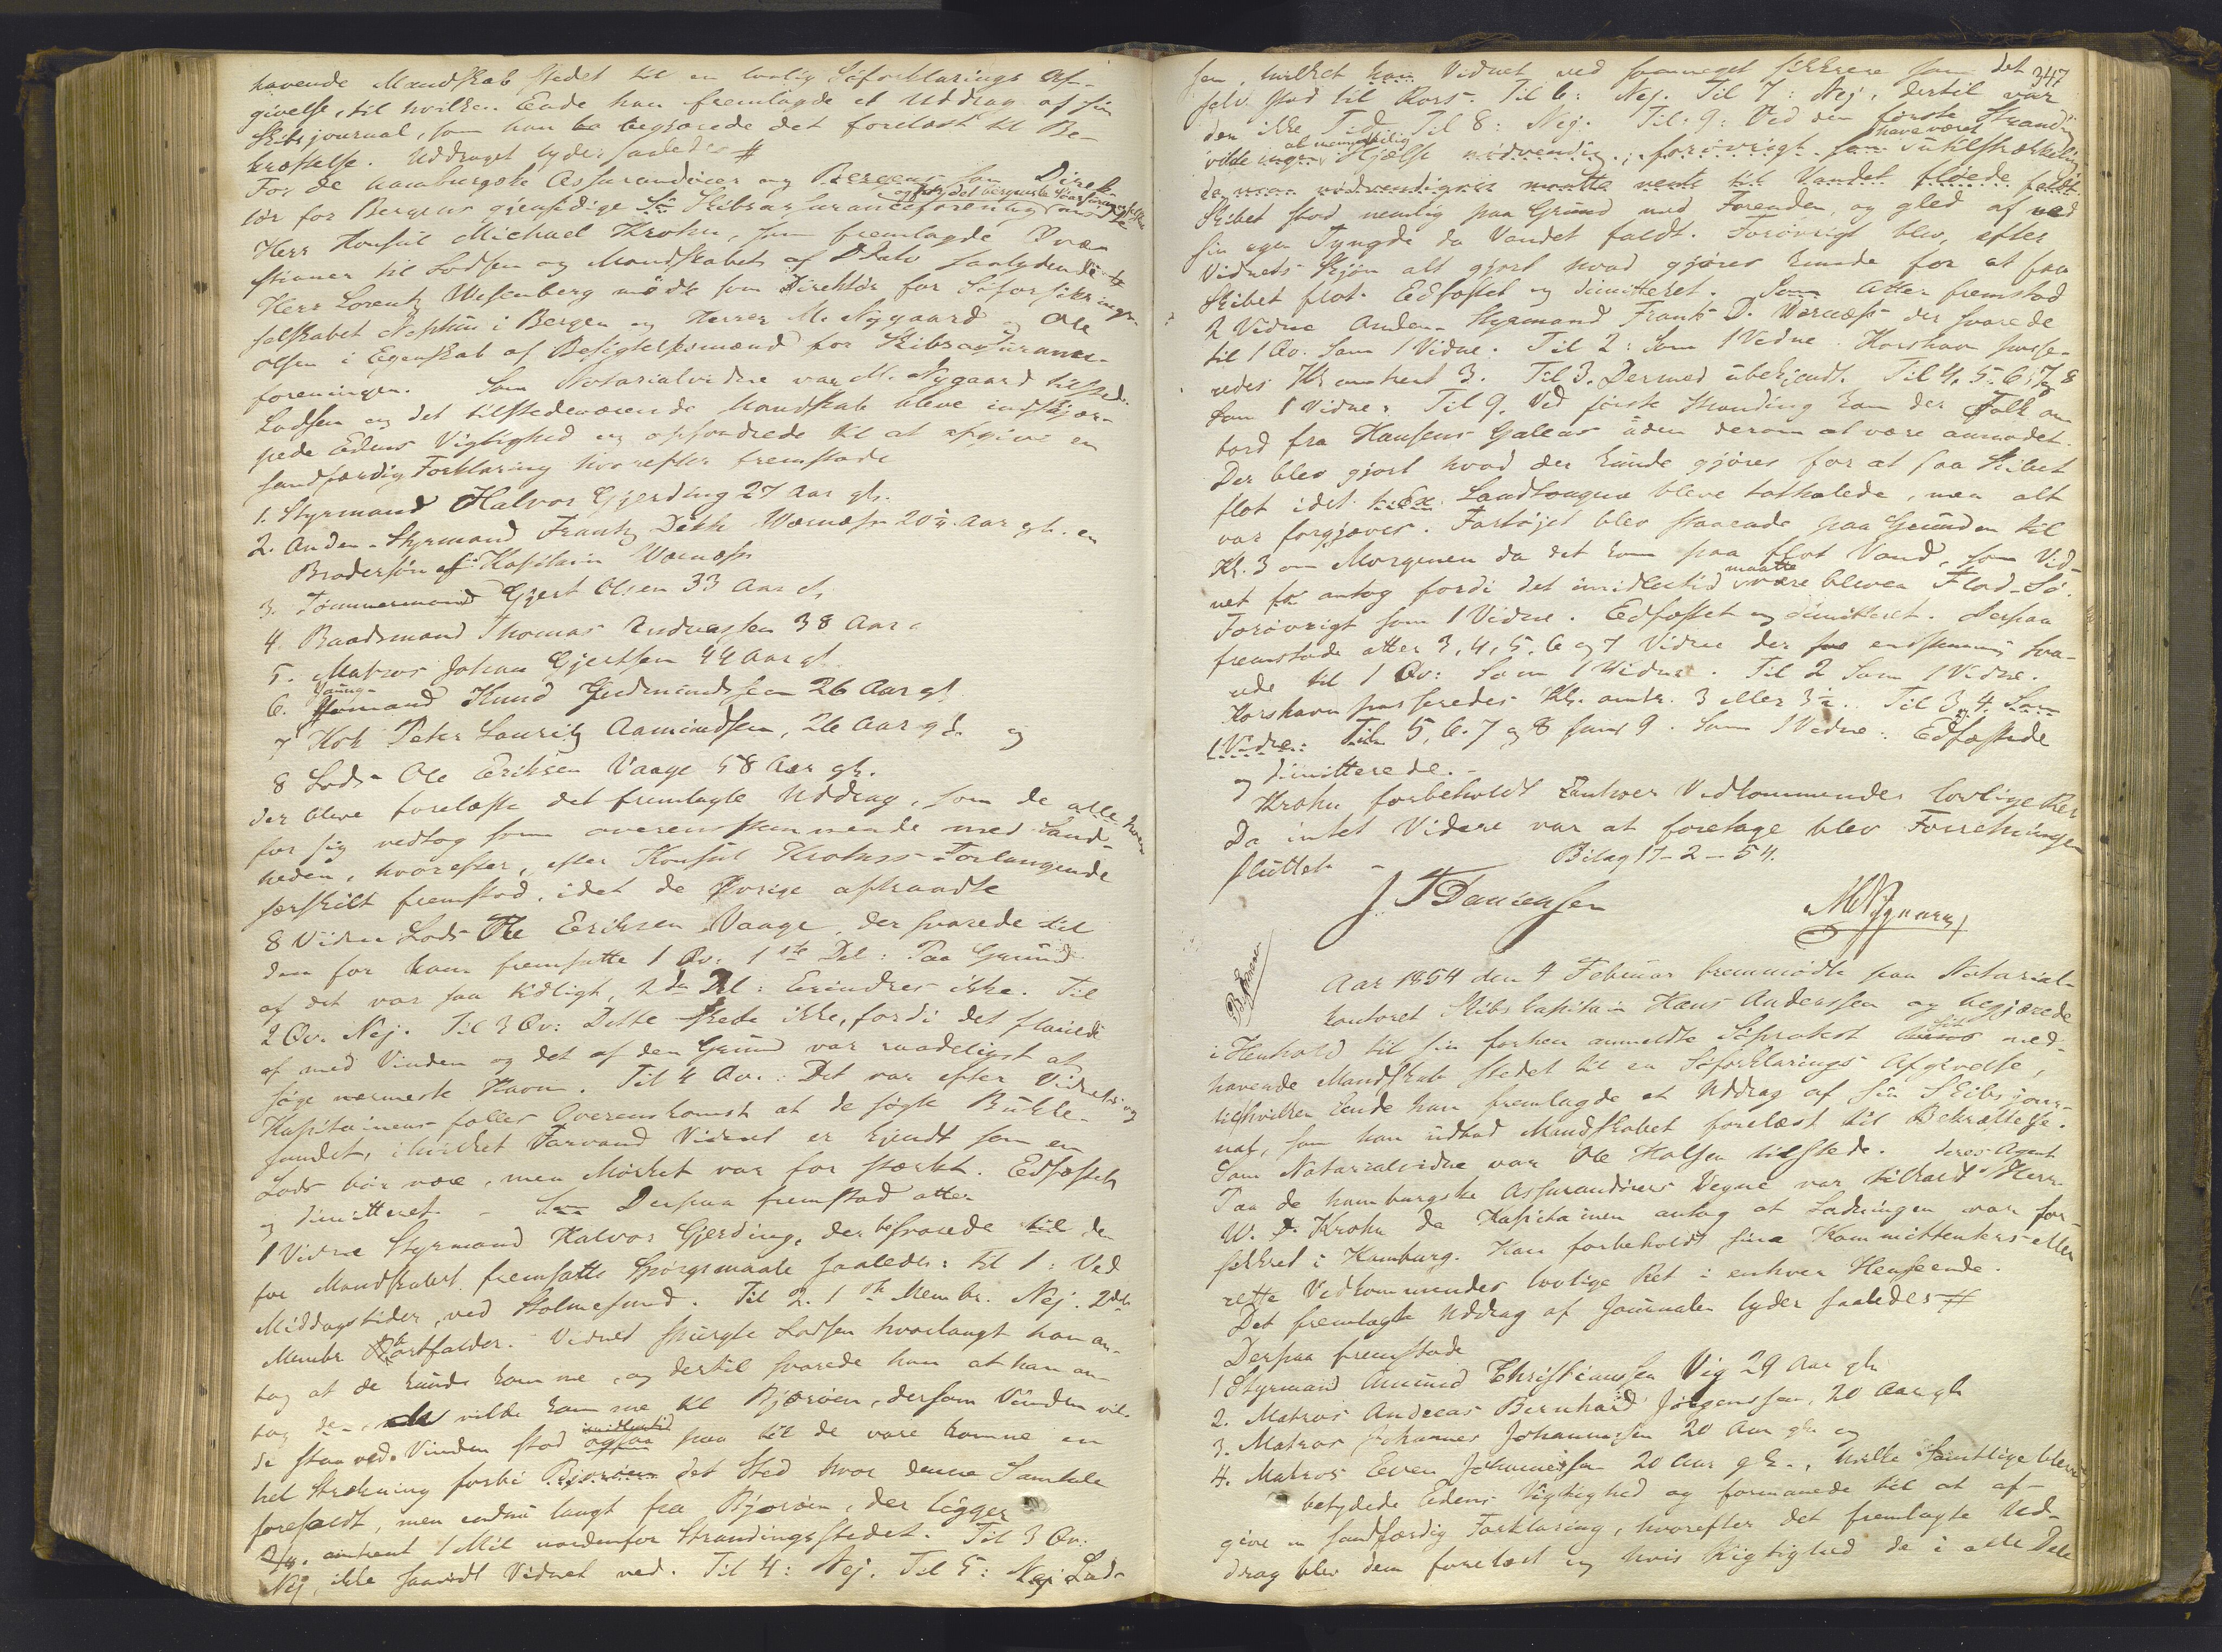 havende Mandskab stedet til en lovlig Söforklarings Af-
givelse, til hvilken Ende han fremlagde et Uddrag af sin
Skibsjournal, som han begjærede det forelæst til Be-
kræftelse. Uddraget lyder saaledes #
For de hamburgske Assurandører og Bergens som Direk-
og for det bergenske Söassurance
tør for Bergens gjensidige Skibsassuranceforening
Herr Konsul Michael Krohn, som fremlagde Qvæ-
stioner til Lodsen og Mandskabet af D. Dato
Herr Lorentz Wesenberg mödte som Direktör for Söforsikrings-
selskabet Neptun i Bergen og Herrer M. Nygaard og Ole
Olsen i Egenskab af Besigtelsesmænd for Skibsassurance-
foreningen. Som Notarialvidne var M. Nygaard tilsted.
Lodsen og det tilstedeværende Mandskab bleve indskjær-
pede Edens Vigtighed og opfordrede til at afgive en
sandfærdig Forklaring hvorefter fremstode
1. Styrmand Halvor Gjerding 27 Aar gl.
2. Anden-Styrmand Frantz Dekke Wærnæss 20½ Aar gl. en
Brodersön af Kapitain Wærnæss
3. Tömmermand Gjert Olsen 33 Aar gl.
4. Baadsmand Thomas Andreassen 38 Aar
5. Matros Johan Gjertsen 44 Aar gl.
Young-
6. mand Knud Gudmundsen 26 Aar gl.
7 Kok Peter Lauritz Aamundsen, 26 Aar gl. og
8 Lods Ole Eriksen Vaage 58 Aar gl.
der bleve forelæste det fremlagte Uddrag, som de alle hver
for sig vedtog som overensstemmende med Sand-
heden, hvorefter, efter Konsul Krohns Forlangende
særskilt fremstod, idet de Øvrige aftraadte
8 Vidne Lods Ole Eriksen Vaage, der svarede til
den for ham fremsatte 1 Qv: 1ste Del: Paa Grund
af det var saa tidligt, 2den Del: Erindres ikke. Til
2 Qv. Nej. Til 3 Qv: Dette skede ikke, fordi det flauede
af med Vinden og det af den Grund var raadeligst at
söge nærmeste Havn. Til 4 Qv.: Det var efter Vidnets og
Kapitainens fælles Overenskomst at de sögte Bukke-
sundet, i hvilket Farvand Vidnet er kjendt som en
Lods bör være, men Mörket var for stærkt. Edfæstet
og dimitteret. - Derpaa fremstod atter
1 Vidne Styrmand Halvor Gjerding, der besvarede de
for Mandskabet fremsatte Spörgsmaale saaledes: til 1: Ved
Middagstider, ved Stolmesund. Til 2. 1ste Membr. Nej. 2det
Membr. bortfalder. Vidnet spurgte Lodsen hvorlangt han an-
tog at de kunde komme, og dertil svarede han at han an-
tog de vilde komme til Bjøröen, dersom Vinden vil-
imidlertid
de staa ved. Vinden stod ogsaa paa til de vare komne en
hel Strækning forbi Bjøröen det Sted hvor denne Samtale
forefaldt, men endnu langt fra Bjøröen, der ligger
omtrent 1 Mil nordenfor Strandingsstedet. Til 3 Qv:
Nej, ikke saavidt Vidnet ved. Til 4: Nej. Til 5: Nej. Lod-
347
sen, hvilket Vidnet ved saameget sikkrere som det
selv stod til Rors. Til 6: Nej. Til 7: Nej, dertil var
der ikke Tid. Til 8: Nej. Til 9: Ved den første Stranding
have været
vilde Hjælp nödvendig, forövrigt utilstrækkelig
da man nödvendigvis maatte vente til Vandet flöede faldt
Skibet stod nemlig paa Grund med Forenden og gled af ved
sin egen Tyngde da Vandet faldt. Forövrigt blev, efter
Vidnets Skjön alt gjort hvad gjöres kunde for at faa
Skibet flot. Edfæstet og dimitteret. Atter fremstod
2 Vidne Anden-Styrmand Frants D. Wærnæss der svarede
til 1 Qv. Som 1 Vidne. Til 2: Som 1 Vidne. Korshavn passe-
redes Kl omtrent 3. Til 3. Dermed ubekjendt. Til 4, 5. 6, 7 og 8
Som 1 Vidne. Til 9. Ved förste Stranding kom der Folk om-
bord fra Hansens Galeas uden derom at være anmodet.
Der blev gjort hvad der kunde gjöres for at faa Skibet
flot idet t. Ex. Landtougene bleve tothalede, men alt
var forgjæves. Fartöjet blev staaende paa Grunden til
Kl. 3 om Morgenen da det kom paa flot Vand, som Vid-
maatte
net antog fordi det imidlertid være bleven Flod-Sö.
Forövrigt som 1 Vidne. Edfæstet og dimitteret. Derpaa
fremstode atter 3, 4, 5, 6 og 7 Vidne der enstemmig sva-
rede til 1 Qv: Som 1 Vidne. Til 2 Som 1 Vidne.
Korshavn passeredes Kl. omtr. 3 eller 3½. Til 3, 4 Som
1 Vidne. Til 5, 6. 7 og 8 samt 9. Som 1 Vidne. Edfæstede
og dimitterede. -
Krohn forbeholdt Enhver Vedkommende lovlige Ret
Da intet Videre var at foretage blev Forretningen
sluttet - Bilag 17-2-54.
MNygaard
Aar 1854 den 4 Februar fremmödte paa Notarial-
kontoret Skibskapitain Hans Anderssen og begjærede
sit
i Henhold til sin forhen anmeldte Söprotest med-
havende Mandskab stedet til en Söforklarings Afgivelse,
til hvilken Ende han fremlagde et Uddrag af sin Skibsjour-
nal, som han udbad Mandskabet forelæst til Bekræftelse.
Som Notarialvidne var Ole Halsen tilstede.
deres Agent
Paa de hamburgske Assurandörers Vegne var tilkaldt Herr
W. D. Krohn da Kapitainen antog at Ladningen var for-
sikkret i Hamburg. Han forbeholdt sine Kommittenters eller
rette Vedkommendes lovlige Ret i enhver Henseende.
Det fremlagte Uddrag af Journalen lyder saaledes #
Derpaa fremstode
1 Styrmand Amund Christianssen Vig 29 Aar gl.
2. Matros Andreas Bernhard Jörgenssen, 20 Aar gl
3. Matros Johannes Johannessen 20 Aar gl. og
4. Matros Even Johannessen 20 Aar gl., hvilke Samtlige bleve
betydede Edens Vigtighed og formanede til at af-
give en sandfærdig Forklaring, hvorefter det fremlagte Ud-
drag blev dem forelæst og hvis Rigtighed de i alle Dele